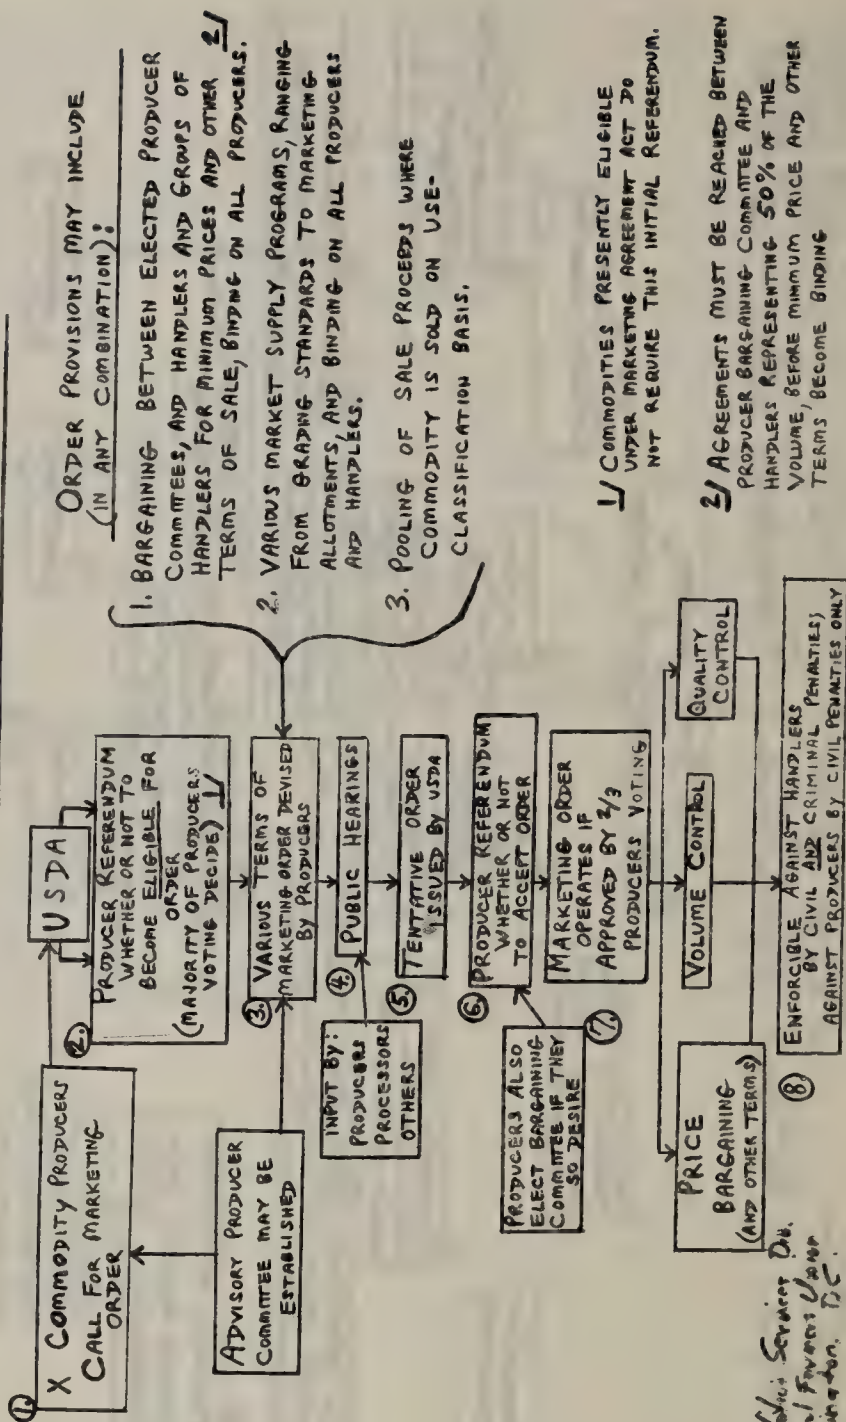 1.
X COMMODITY PRODUCERS
CALL FOR MARKETING
ORDER
USDA
2.
PRODUCER REFERENDUM
WHETHER OR NOT TO
BECOME ELIGIBLE FOR
ORDER
(MAJORITY OF PRODUCERS
VOTING DECIDE) 1/
ADVISORY PRODUCER
COMMITTEE MAY BE
ESTABLISHED
3.
VARIOUS TERMS OF
MARKETING ORDER DEVISED
BY PRODUCERS
4.
PUBLIC HEARINGS
INPUT BY:
PRODUCERS
PROCESSORS
OTHERS
5.
TENTATIVE ORDER
ISSUED BY USDA
6.
PRODUCER REFERENDUM
WHETHER OR NOT
TO ACCEPT ORDER
PRODUCERS ALSO
ELECT BARGAINING
COMMITTEE IF THEY
SO DESIRE
7.
MARKETING ORDER
OPERATES IF
APPROVED BY 2/3
PRODUCERS VOTING
PRICE
BARGAINING
(AND OTHER TERMS)
VOLUME CONTROL
QUALITY
CONTROL
8
ENFORCIBLE AGAINST HANDLERS
BY CIVIL AND CRIMINAL PENALTIES;
AGAINST PRODUCERS BY CIVIL PENALTIES ONLY
ORDER PROVISIONS MAY INCLUDE
(IN ANY COMBINATION):
1. BARGAINING BETWEEN ELECTED PRODUCER
COMMITTEES, AND HANDLERS AND GROUPS OF
HANDLERS FOR MINIMUM PRICES AND OTHER 2/
TERMS OF SALE, BINDING ON ALL PRODUCERS.
2. VARIOUS MARKET SUPPLY PROGRAMS, RANGING
FROM GRADING STANDARDS TO MARKETING
ALLOTMENTS, AND BINDING ON ALL PRODUCERS
AND HANDLERS.
3. POOLING OF SALE PROCEEDS WHERE
COMMODITY IS SOLD ON USE-
CLASSIFICATION BASIS.
1/ COMMODITIES PRESENTLY ELIGIBLE
UNDER MARKETING AGREEMENT ACT DO
NOT REQUIRE THIS INITIAL REFERENDUM.
2/ AGREEMENTS MUST BE REACHED BETWEEN
PRODUCER BARGAINING COMMITTEE AND
HANDLERS REPRESENTING 50% OF THE
VOLUME, BEFORE MINIMUM PRICE AND OTHER
TERMS BECOME BINDING
Services Div.
Farmers Union
D.C.